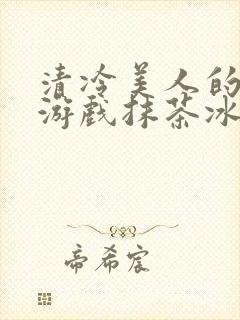 清冷美人的
游戏抹茶冰
帝希宸